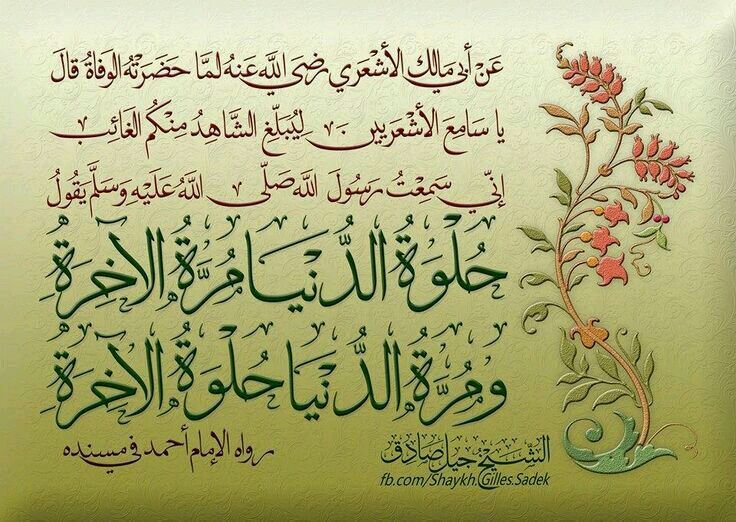 عَنْ أَبِي مَالِكٍ الأَشْعَرِي رَضِيَ اللَّهُ عَنْهُ لَمَّا حَضَرَتْهُ الوَفَاةُ قَالَ
يَا سَامِعَ الأَشْعَرِيين لِيُبَلِّغِ الشَّاهِدُ مِنْكُم الغَائِب
إِنِّي سَمِعْتُ رَسُولَ اللَّهِ صَلَّى اللَّهُ عَلَيْهِ وَسَلَّمَ يَقُولُ
حُلْوَةُ الدُّنْيَا مُرَّةُ الآخِرَةِ
وَمُرَّةُ الدُّنْيَا حُلْوَةُ الآخِرَةِ
رواه الإمام أحمد في مسنده
الشَّيْخ جيل صَادِق
fb.com/Shaykh.Gilles.Sadek